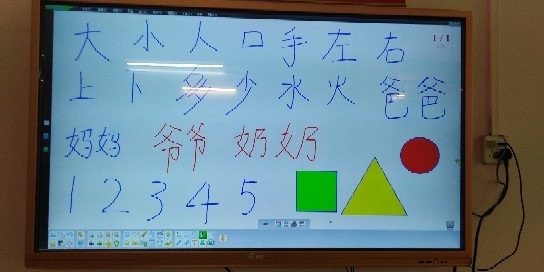 大 小 人 口 手 左 右 1/1
上 卜 多 少 水 火 爸爸
妈妈 爷爷 奶奶
1 2 3 4 5